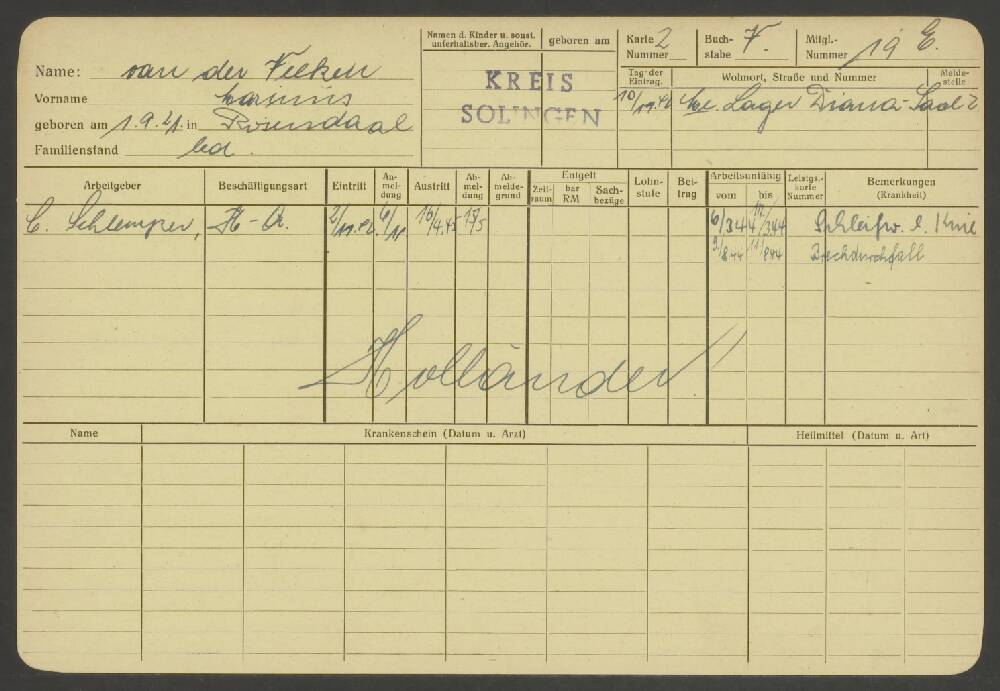 Name: van der Velken
Vorname Marinus
geboren am 1.9.21. in Rosendaal
Familienstand led.
Namen d. Kinder u. sonst. unterhaltsber. Angehör. geboren am
KREIS
SOLINGEN
Karte Nummer 2 Buchstabe V. Mitgl.-Nummer 19 E.
Tag der Eintrag. Wohnort, Straße und Nummer Meldestelle
10/11.42 Lager Diana-Saal 2
Arbeitgeber Beschäftigungsart Eintritt Anmeldung Austritt Abmeldung Abmeldegrund Entgelt Zeitraum bar RM Sachbezüge Lohnstufe Beitrag Arbeitsunfähig vom bis Leistgs.-karte Nummer Bemerkungen (Krankheit)
C. Schlemper, H-A. 2/11.42 6/11 16/4.45 15/5 6/344 14/344 Schleifw. l. Knie
9/844 11/844 Brechdurchfall
Holländer
Name Krankenschein (Datum u. Arzt) Heilmittel (Datum u. Art)